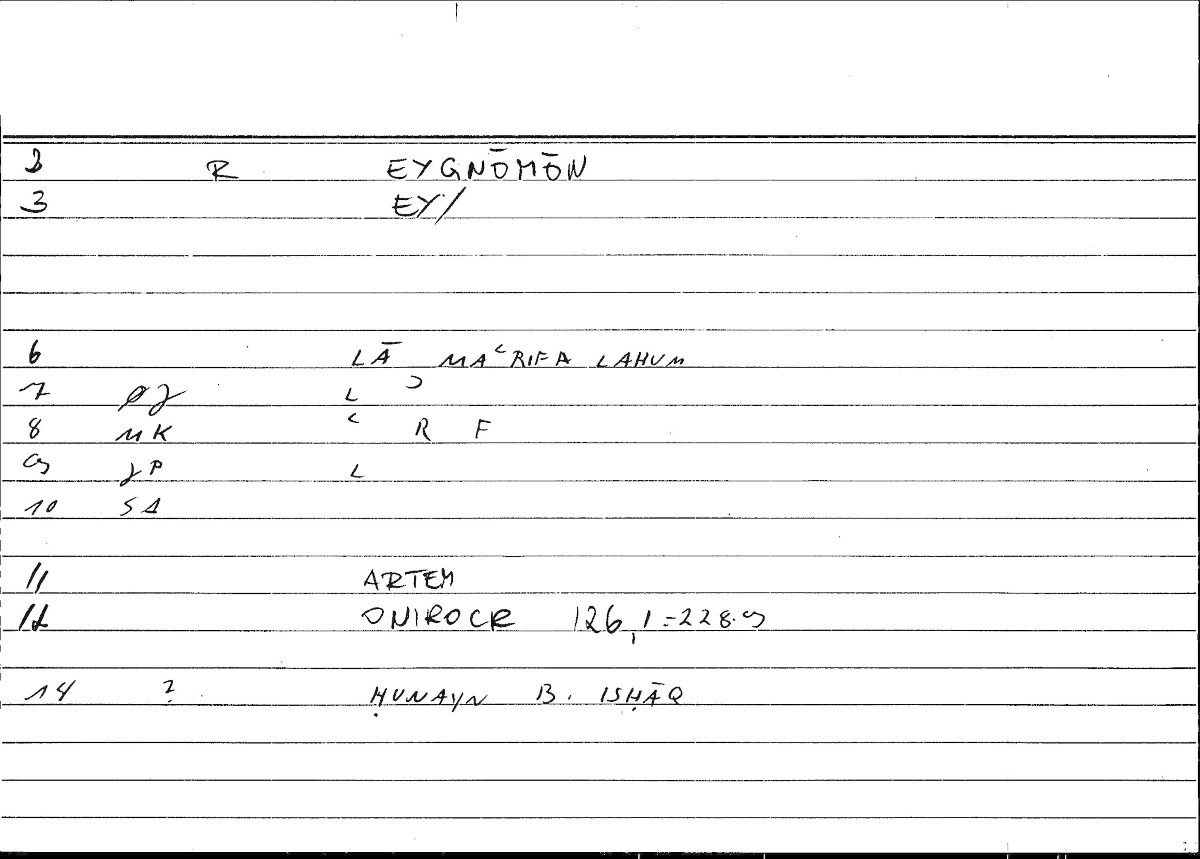 2 R EYGNŌMŌN
3 EY/
6 LĀ MAʿRIFA LAHUM
7 L ʾ
8 MK ʿ R F
9 JP L
10 SA
11 ARTEM
12 ONIROCR 126,1=228.9
14 ? ḤUNAYN B. ISḤĀQ